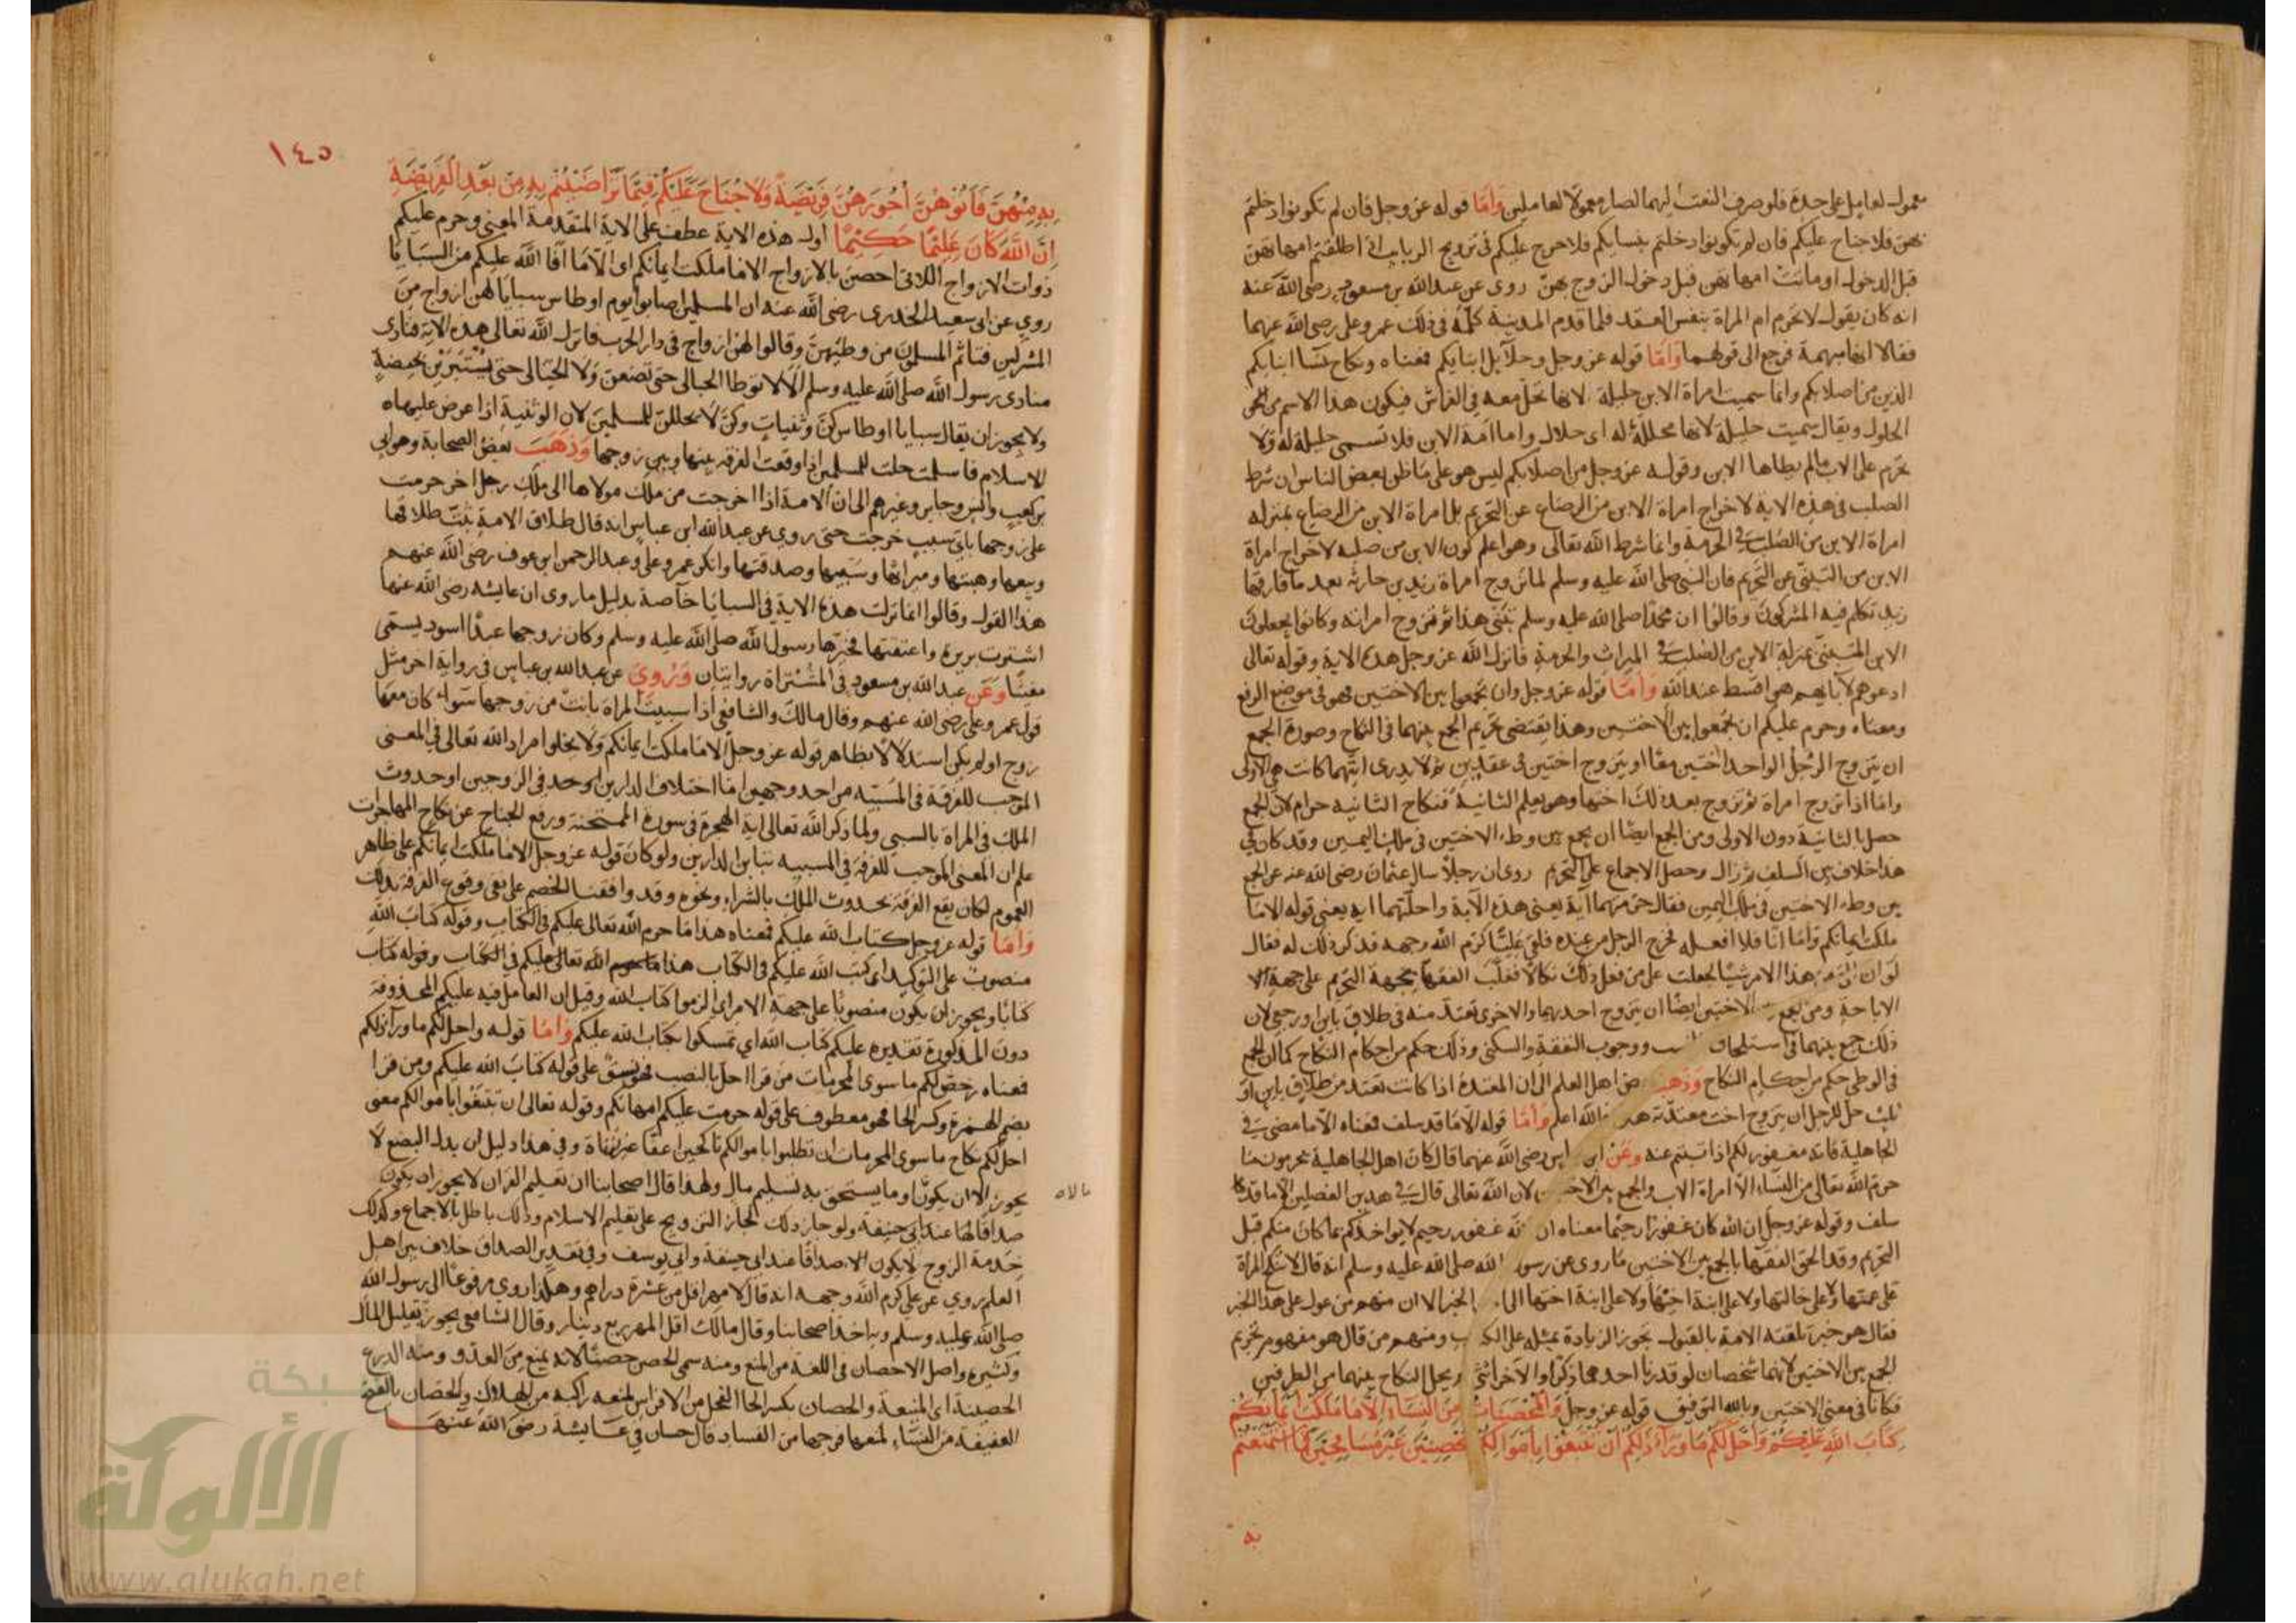 معمول لعامل على حدة فلو صرف النعت اليهما لصار معمولا لعاملين وَأمّا قوله عز وجل فان لم تكونوا دخلتم
بهن فلا جناح عليكم فان لم تكونوا دخلتم بنسايكم فلا حرج عليكم في تزويج الربايب اذا طلقتم امهاتهن
قبل الدخول او ماتت امهاتهن قبل دخول الزوج بهنّ روى عن عبد الله بن مسعود رضي الله عنه
انه كان يقول لا تحرم ام المراة بنفس العقد فلما قدم المدينة كلّه في ذلك عمر وعلى رضي الله عنهما
فقالا انها مبهمة فرجع الى قولهما وَأمّا قوله عز وجل وحلآيل ابنايكم فمعناه ونكاح نسآ ابنايكم
الذين من اصلابكم وانما سميت امراة الابن حليلة لانها تحل معه في الفراش فيكون هذا الاسم من
الحلول ويقال سميت حليلة لانها محللة له اى حلال واما امة الابن فلا تسمى حليلة له ولا
تحرم على الاب مالم يطاها الابن وقوله عز وجل من اصلابكم ليس هو على ما ظن بعض الناس ان شرط
الصلب في هذه الاية لاخراج امراة الابن من الرضاع عن التحريم بل امراة الابن من الرضاع بمنزلة
امراة الابن من الصُلب في الحرمة وانما شرط الله تعالى وهو اعلم كون الابن من صلبه لاخراج امراة
الابن من التبنّي عن التحريم فان النبي صلى الله عليه وسلم لما تزوج امراة زيد بن حارثة بعد ما فارقها
زيد تكلم فيه المشركون وقالوا ان محمدا صلى الله عليه وسلم تبنّى هذا ثم تزوج امراته وكانوا يجعلون
الابن المتبنّى بمنزلة الابن من الصُلب في الميراث والحرمة فانزل الله عز وجل هذه الاية وقوله تعالى
ادعوهم لآبايهم هو اقسط عند الله وَأمّا قوله عز وجل وان تجمعوا بين الاختين فهو في موضع الرفع
ومعناه وحرم عليكم ان تجمعوا بين الاختين وهذا يقتضى تحريم الجمع بينهما في النكاح وصورة الجمع
ان يتزوج الرجل الواحد اختين معًا او يتزوج اختين في عقدين ثم لا يدرى ايتهما كانت هي الاولى
واما اذا تزوج امراة ثم تزوج بعد ذلك اختها وهو يعلم الثانية فنكاح الثانية حرام لان الجمع
حصل بالثانية دون الاولى ومن الجمع ايضًا ان يجمع بين وطء الاختين في ملك اليمين وقد كان في
هذا خلاف بين السلف ثم زال وحصل الاجماع على التحريم روى ان رجلًا سال عثمان رضي الله عنه عن الجمع
بين وطء الاختين في ملك اليمين فقال حرّمتهما آية يعنى هذه الآية واحلّتهما اية يعنى قوله الا ما
ملكت ايمانكم وَامّا انا فلا افعله فخرج الرجل من عنده فلقى عليًّا كرم الله وجهه فذكر ذلك له فقال
لو ان الىّ من هذا الامر شيئا لجعلت على من فعل ذلك نكالًا فغلّب الفقهآ جهة التحريم على جهة
الاباحة ومن الاختين ايضًا ان يتزوج احديهما والاخرى تعتد منه في طلاق باين او رجعى لان
ذلك جمع بينهما في استلحاق ووجوب النفقة والسكنى وذلك حكم من احكام النكاح كما ان الجمع
في الوطى حكم من احكام النكاح وَذَهَبَ اهل العلم الى ان المعتدة اذا كانت تعتد من طلاق باين او
ثلث حل للرجل ان يتزوج اخت معتدّته والله اعلم وَأمّا قوله الا ما قد سلف فمعناه الا ما مضى في
الجاهلية فانه مغفور لكم اذا تبتم عنه وَعَنْ رضي الله عنهما قال كان اهل الجاهلية يحرمون ما
حرم الله تعالى من النسآء الا امراة الاب والجمع بين لان الله تعالى قال في هذين الفصلين الا ما قد
سلف وقوله عز وجل ان الله كان غفورًا رحيمًا معناه ان غفور رحيم لا يواخذكم بما كان منكم قبل
التحريم وقد الحق الفقهآ بالجمع بين الاختين ما روى عن رسول الله صلى الله عليه وسلم انه قال لا تنكح المراة
على عمتها ولا على خالتها ولا على ابنة اخيها ولا على ابنة اختها الخبر الا ان منهم من عول على هذا الخبر
فقال هو خبر تلقته الامة بالقبول تجوز الزيادة بمثله على ومنهم من قال هو مفهوم من تحريم
الجمع بين الاختين لانهما شخصان لو قدرنا احدهما ذكرًا والآخر انثى ويحل النكاح بينهما من الطرفين
فكانا في معنى الاختين وبالله التوفيق قوله عز وجل وَالْمُحْصَنَاتُ مِنَ النِّسَاءِ إلَّا مَا مَلَكَتْ أيْمَانُكُمْ
كِتَابَ اللهِ عَلَيْكُمْ وَأُحِلَّ لَكُمْ مَا وَرَآءَ ذَلِكُمْ أنْ تَبْتَغُوا بِأمْوَالِكُمْ مُحْصِنِينَ غَيْرَ مُسَافِحِينَ فَمَا اسْتَمْتَعْتُمْ
به
١٤٥
بِهِ مِنْهُنَّ فَآتُوْهُنَّ أُجُورَهُنَّ فَرِيْضَةً وَلَا جُنَاحَ عَلَيْكُمْ فِيْمَا تَرَاضَيْتُمْ بِهِ مِنْ بَعْدِ الْفَرِيْضَةِ
إنَّ اللهَ كَانَ عَلِيْمًا حَكِيْمًا اول هذه الاية عطف على الاية المتقدمة المعنى وحرم عليكم
ذوات الازواج اللاتى احصن بالازواج الا ما ملكت ايمانكم اى الا ما افآ الله عليكم من السبايا
روي عن ابى سعيد الخدرى رضي الله عنه ان المسلمين اصابوا يوم اوطاس سبايا لهن ازواج من
المشركين فتاثم المسلمون من وطئهن وقالوا لهن ازواج في دار الحرب فانزل الله تعالى هذه الاية فنادى
منادى رسول الله صلى الله عليه وسلم ألا لا توطا الحبالى حتى تضعن ولا الحيالى حتى يستبرين بحيضة
ولا يجوز ان يقال سبايا اوطاس كنّ وثنياتٍ وكنّ لا يحللن للمسلمين لان الوثنية اذا عرض عليها
الاسلام فاسلمت حلت للمسلمين اذا وقعت الفرقة بينها وبين زوجها وَذَهَبَ بعض الصحابة وهو ابى
بن كعب وانس وجابر وغيرهم الى ان الامة اذا اخرجت من ملك مولاها الى ملك رجل اخر حرمت
على زوجها باى سبب خرجت حتى روي عن عبد الله ابن عباس انه قال طلاق الامة ستّ طلاقها
وبيعها وهبتها وميراثها وسبيها وصدقتها وانكر عمر وعلى وعبد الرحمن ابن عوف رضي الله عنهم
هذا القول وقالوا انما نزلت هذه الاية في السبايا خآصة بدليل ما روى ان عايشة رضي الله عنها
اشترت بريرة واعتقتها فخيّرها رسول الله صلى الله عليه وسلم وكان زوجها عبدًا اسود يسمى
مغيثًا وَعَن عبد الله بن مسعود في المُشْتراة روايتان وَرُوِيَ عن عبد الله بن عباس في رواية اخر مثل
قول عمر وعلى رضي الله عنهم وقال مالك والشافعى اذا سبيت المراة بانت من زوجها سوآء كان معها
زوج او لم يكن استدلالًا بظاهر قوله عز وجل الا ما ملكت ايمانكم ولا يخلوا مراد الله تعالى في المعنى
الموجب للفرقة في المسبيّه من احد وجهين اما اختلاف الدارين او حد في الزوجين او حدوث
الملك في المراة بالسبى ولما ذكر الله تعالى اية الهجرة في سورة الممتحنة ورفع الجناح عن نكاح المهاجرات
علم ان المعنى الموجب للفرقة في المسبيه تباين الدارين ولو كان قوله عز وجل الا ما ملكت ايمانكم على ظاهر
العموم لكان يقع الفرقة بحدوث الملك بالشراء ونحوه وقد وافقنا الخصم على نفى وقوع الفرقة بذلك
وَأمّا قوله عز وجل كتاب الله عليكم فمعناه هذا ما حرم الله تعالى عليكم في الكتاب وقوله كتاب الله
منصوب على التوكيد اى كتب الله عليكم في الكتاب هذا ما حرم الله تعالى عليكم في الكتاب وقوله كتاب
كتابًا ويجوز ان يكون منصوبًا على جهة الامر اى الزموا كتاب الله وقيل ان العامل فيه عليكم المحذوفة
دون المذكورة تقديره عليكم كتاب الله اى تمسكوا بكتاب الله عليكم وَأمّا قوله واحل لكم ما ورآء ذلكم
فمعناه رخص لكم ما سوى المحرمات من قرا احلّ بالنصب فهو نسق على قوله كتابَ الله عليكم ومن قرا
بضم الهمزة وكسر الحا فهو معطوف على قوله حرمت عليكم امهاتكم وقوله تعالى ان تبتغوا باموالكم معنى
احل لكم نكاح ما سوى المحرمات ان تطلبوا باموالكم ناكحين اعفّآ غير زناة وفي هذا دليل ان بدل البضع لا
يجوز الا ان يكون او ما يستحق به تسليم مال ولهذا قال اصحابنا ان تعليم القران لا يجوز ان يكون
مالاه
صداقًا لها عند ابى حنيفة ولو جاز ذلك لجاز التزويج على تعليم الاسلام وذلك باطل بالاجماع وكذلك
خدمة الزوج لا يكون صداقًا عند ابى حنيفة وابى يوسف وفي تقدير الصداق خلاف بين اهل
العلم روي عن على كرم الله وجهه انه قال لا مهر اقل من عشرة دراهم وهكذا روي مرفوعًا الى رسول الله
صلى الله عليه وسلم وبه اخذ اصحابنا وقال مالك اقل المهر ربع دينار وقال الشافعى يجوز بقليل المال
وكثيره واصل الاحصان في اللغة من المنع ومنه سمى الحصن حصنًا لانه يمنع من العدو ومنه الدرع
الحصينة اى المنيعة والحصان بكسر الحا الفحل من الافراس لمنعه راكبه من الهلاك والحصان بالفتح
العفيفة من النسآء لمنعها فرجها من الفساد قال حسان في عايشة رضي الله عنها
شبكة
الألوكة
www.alukah.net